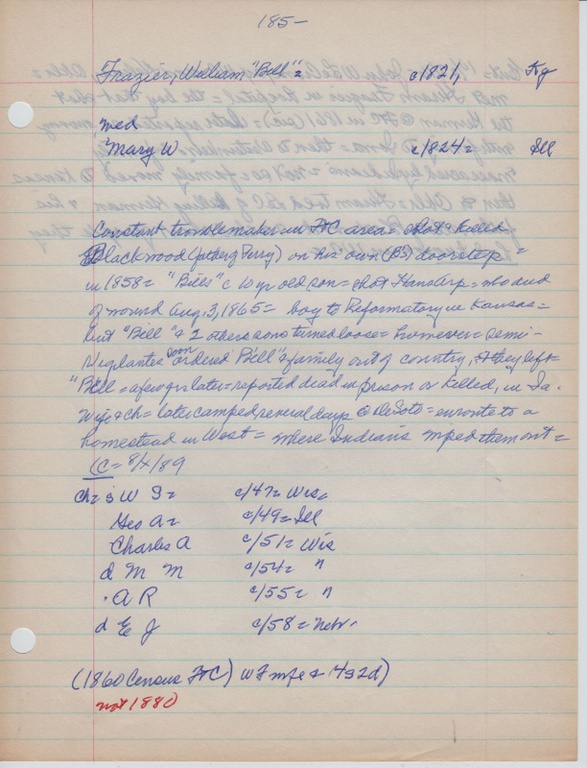 185-
Frazier, William "Bill" = c/1821, Ky
med
Mary W c/1824= Ill
Constant troublemaker in FtC area= shot & killed
Blackwood (father of Perry) on his own (B's) doorstep =
in 1858= "Bill's" c 10 yr old son= shot Hans Arp= who died
of wound Aug, 3, 1865= boy to Reformatory in Kansas=
but "Bill" & 2 others sons turned loose= however= semi-
Vigilantes soon ordered "Bill" & family out of country, & they left=
"Bill= a few yrs later= reported dead in prison or killed, in Ia.
Wife & ch= later camped several days @ DeSoto= enroute to a
homestead in West= where Indians wiped them out=
(C= 8/4/89
Ch= s W I= c/47= Wis=
Geo A= c/49= Ill
Charles A c/51= Wis
d M M c/54= "
. A R c/55= "
d E J c/58= Nebr.
(1860 Census FtC) W F & 4s 2d)
not 1880